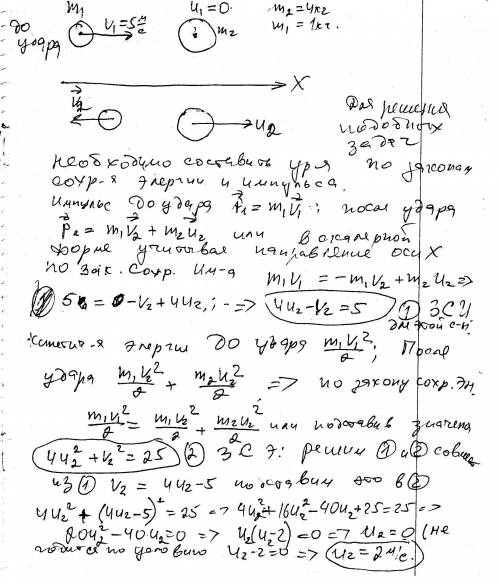 m₁ u₁=0. m₂=4кг
до удара V₁=5 м/с m₂ m₁=1кг.
X
V₂ u₂
Для решения
подобных
задач
необходимо составить ур-я по законам
сохр-я энергии и импульса.
Импульс до удара P₁=m₁V₁; после удара
P₂=m₁V₂+m₂u₂ или в скалярной
форме учитывая направление оси X
по зак. сохр. им-а m₁V₁=-m₁V₂+m₂u₂=>
① 5=-V₂+4u₂; => 4u₂-V₂=5 ① ЗСИ
для этой с-ы.
Кинетич-я энергия до удара m₁V₁²/2; После
удара m₁V₂²/2 + m₂u₂²/2 => по закону сохр. эн.
m₁V₁²/2 = m₁V₂²/2 + m₂u₂²/2 или подставив значен
4u₂²+V₂²=25 ② ЗСЭ: решим ① и ② совмест
из ① V₂=4u₂-5 подставим это в ②
4u₂²+(4u₂-5)²=25 => 4u₂²+16u₂²-40u₂+25=25=>
20u₂²-40u₂=0 => u₂(u₂-2)=0=> u₂=0 (не
годится по условию u₂-2=0=> u₂=2м/с.